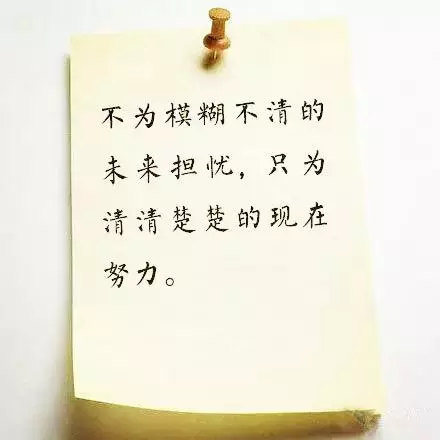 不为模糊不清的
未来担忧，只为
清清楚楚的现在
努力。